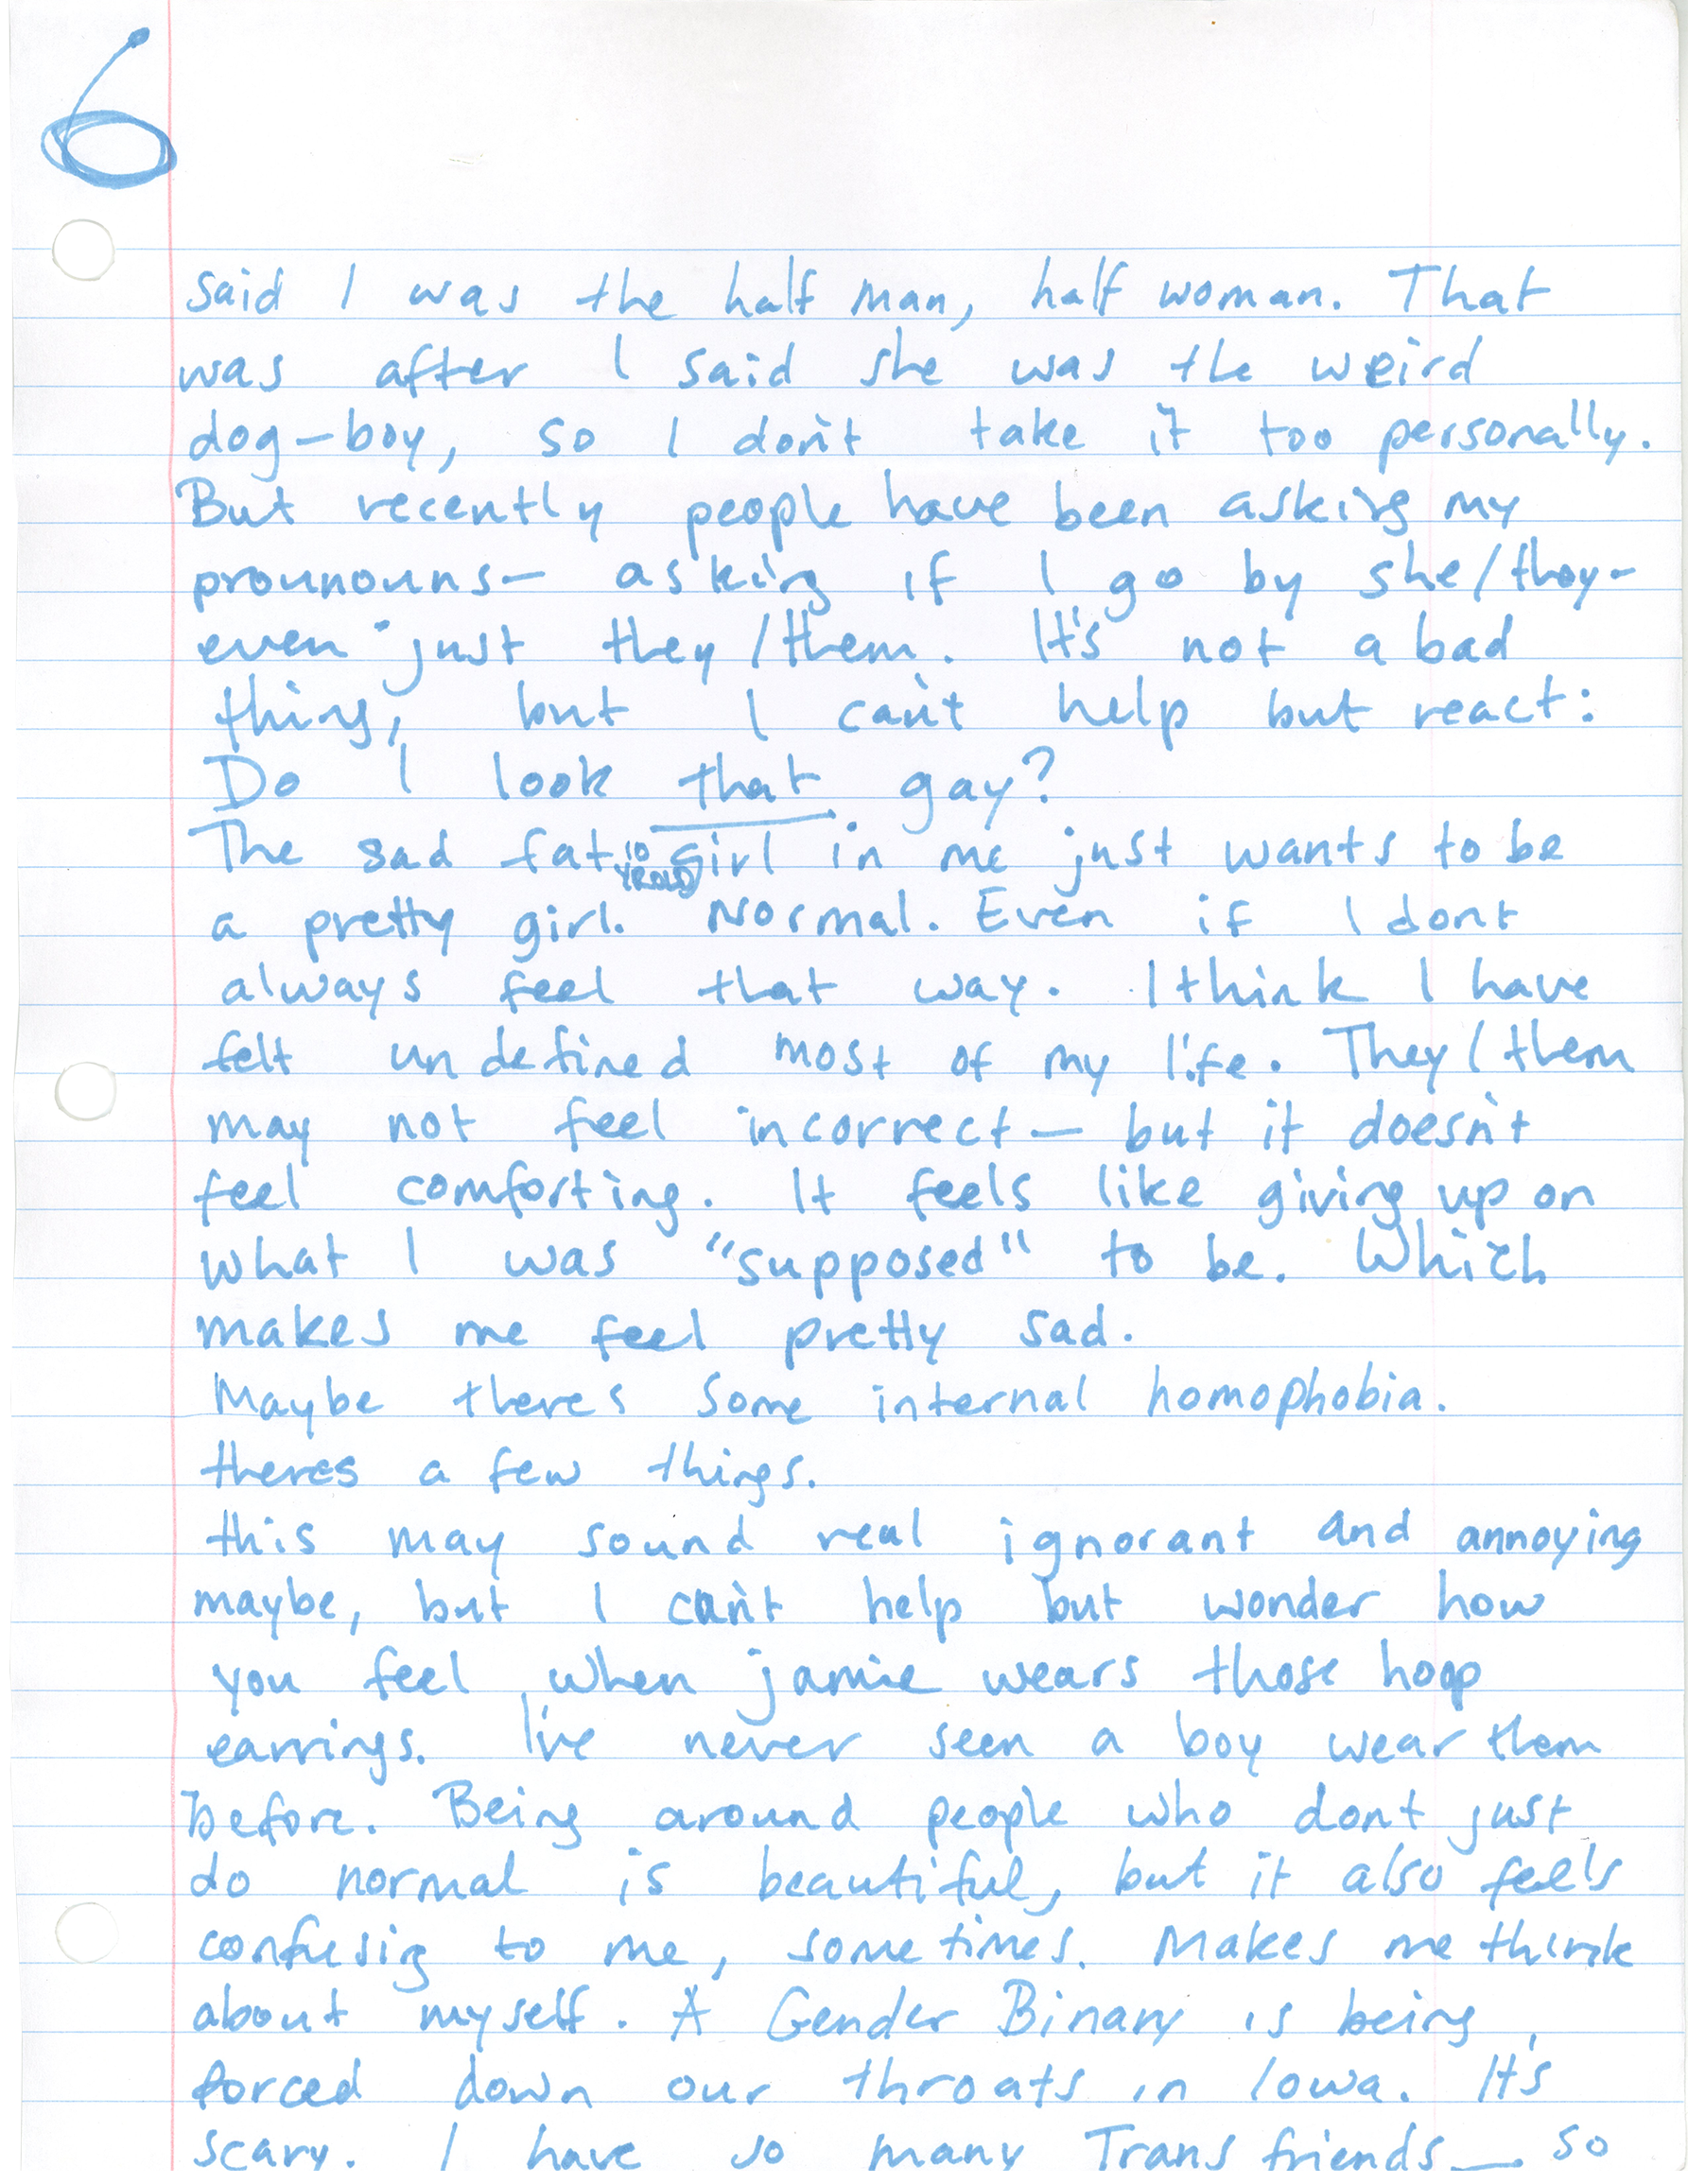 6
said I was the half man, half woman. That
was after I said she was the weird
dog-boy, so I don't take it too personally.
But recently people have been asking my
prounouns— asking if I go by she/they-
even just they/them. It's not a bad
thing, but I can't help but react:
Do I look that gay?
The sad fat 10 YROLD Girl in me just wants to be
a pretty girl. Normal. Even if I dont
always feel that way. I think I have
felt undefined most of my life. They/them
may not feel incorrect— but it doesn't
feel comforting. It feels like giving up on
what I was "supposed" to be. Which
makes me feel pretty sad.
Maybe theres some internal homophobia.
theres a few things.
this may sound real ignorant and annoying
maybe, but I can't help but wonder how
you feel when jamie wears those hoop
earrings. I've never seen a boy wear them
before. Being around people who dont just
do normal is beautiful, but it also feels
confusing to me, sometimes. Makes me think
about myself. A Gender Binary is being
forced down our throats in Iowa. It's
scary. I have so many Trans friends— so